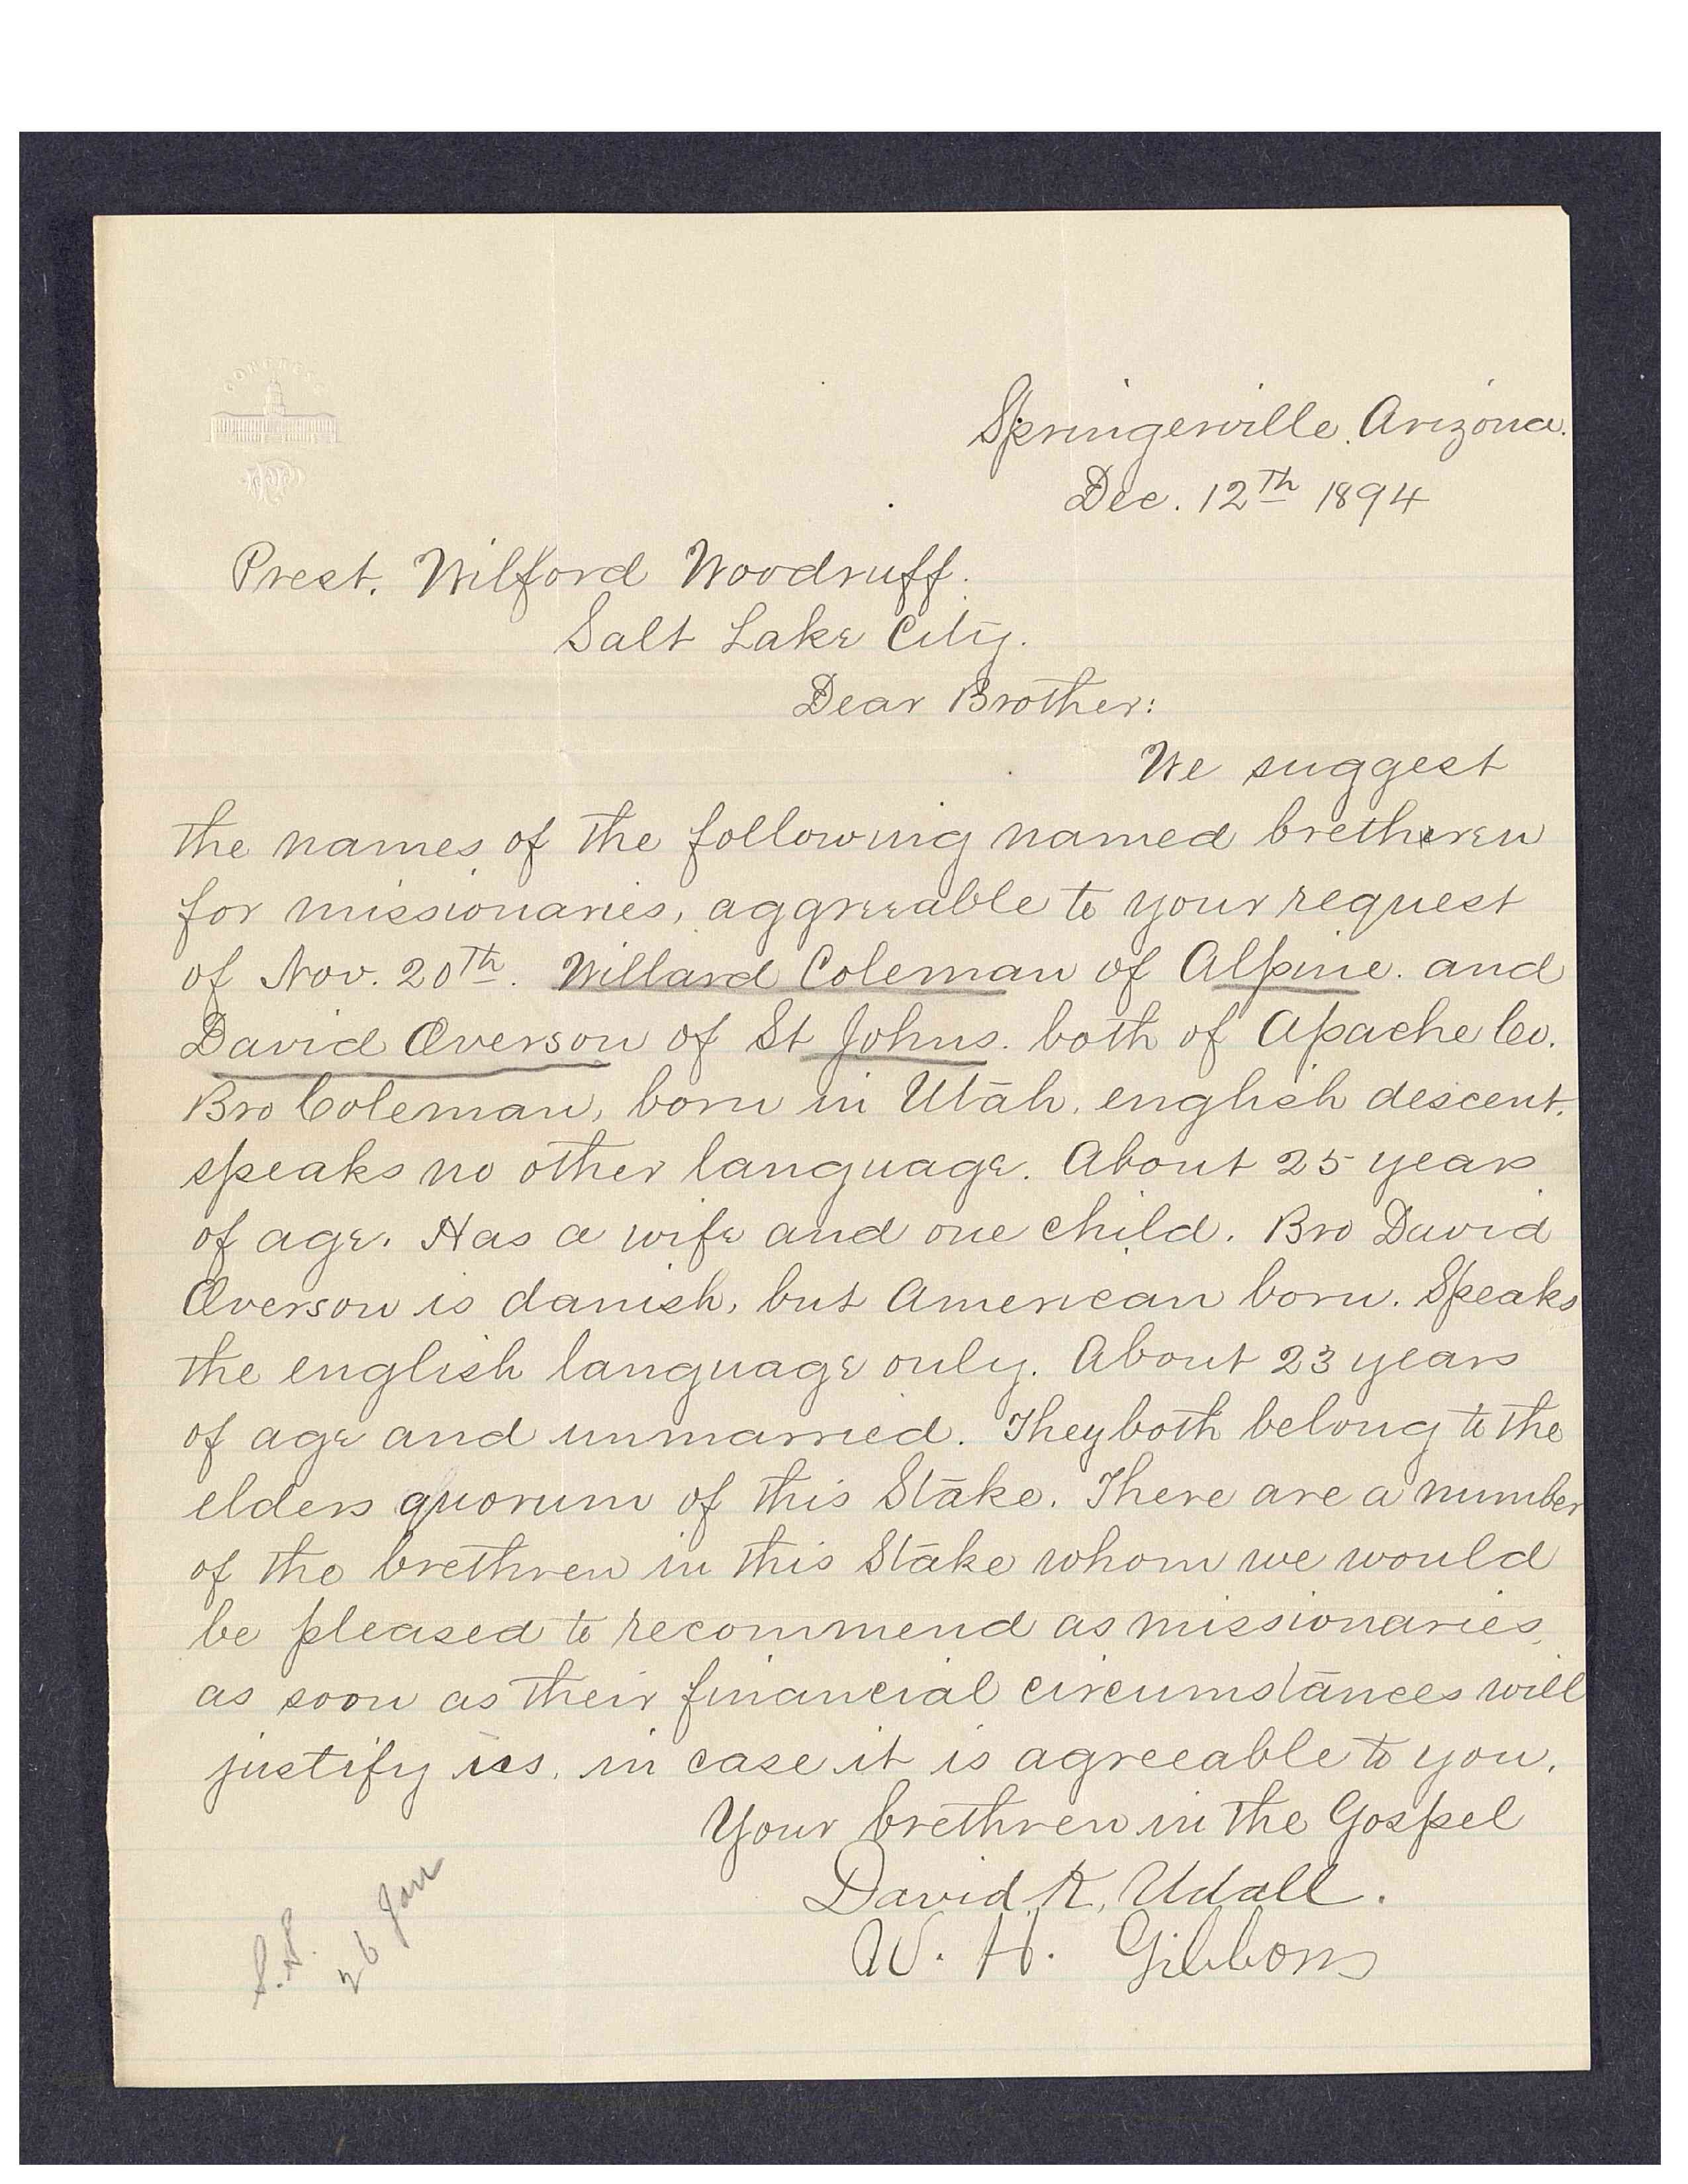 CONGRESS
Springerville. Arizona.
Dec. 12th 1894
Prest. Wilford Woodruff.
Salt Lake City.
Dear Brother:
We suggest
the names of the following named bretheren
for missionaries, aggreeable to your request
of Nov. 20th. Willard Coleman of Alpine. and
David Overson of St Johns. both of Apache Co.
Bro Coleman, born in Utah, english descent.
speaks no other language. About 25 years
of age. Has a wife and one child. Bro David
Overson is danish, but American born. Speaks
the english language only. About 23 years
of age and unmarried. They both belong to the
elders quorum of this Stake. There are a number
of the brethren in this Stake whom we would
be pleased to recommend as missionaries,
as soon as their financial circumstances will
justify us, in case it is agreeable to you.
Your brethren in the Gospel
David K. Udall.
W. H. Gibbons
S.S.
26 Jan